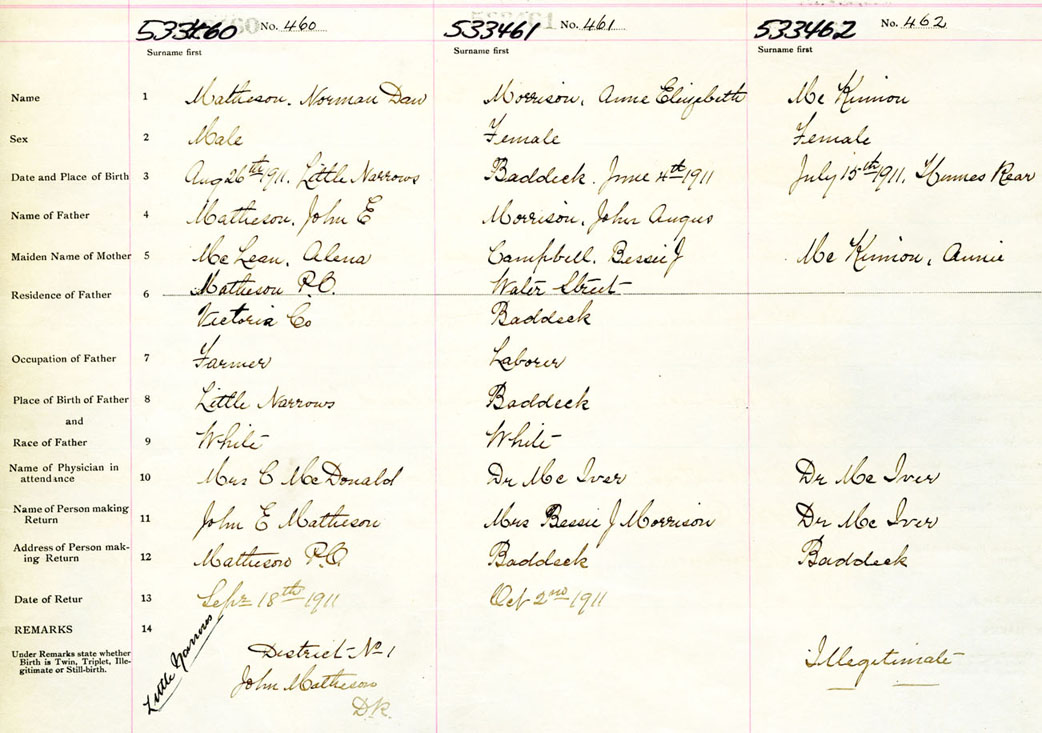 533460 No. 460 533461 No. 461 533462 No. 462
Surname first Surname first Surname first
Name 1 Matheson, Norman Dan Morrison, Anne Elizabeth Mc Kinnon
Sex 2 Male Female Female
Date and Place of Birth 3 Aug 26th 1911, Little Narrows Baddeck. June 4th 1911 July 15th 1911, Rear
Name of Father 4 Matheson, John E Morrison, John Angus
Maiden Name of Mother 5 Mc Lean, Alena Campbell, Bessie J Mc Kinnon, Annie
Residence of Father 6 Matheson P.O. Water Street
Victoria Co Baddeck
Occupation of Father 7 Farmer Laborer
Place of Birth of Father 8 Little Narrows Baddeck
and
Race of Father 9 White White
Name of Physician in
attendance 10 Mrs C McDonald Dr Mc Iver Dr Mc Iver
Name of Person making
Return 11 John E Matheson Mrs Bessie J Morrison Dr Mc Iver
Address of Person mak-
ing Return 12 Matheson P.O. Baddeck Baddeck
Date of Retur 13 Sept 18th 1911 Oct 2nd 1911
REMARKS 14
Under Remarks state whether
Birth is Twin, Triplet, Ille-
gitimate or Still-birth.
Little Narrows
District No 1
John Matheson
D.R.
Illegitimate